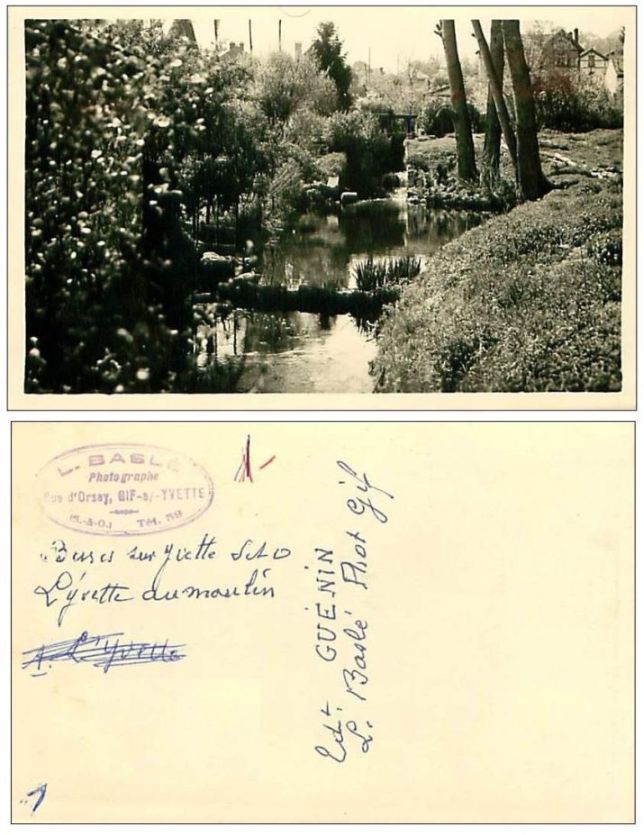 L. BASLÉ
Photographe
Rue d'Orsay, GIF-s/-YVETTE
(S.-&-O.) Tél. 59
Bures sur Yvette S et O
L'yvette au moulin
L'Yvette
Edt. GUÉNIN
L. Baslé Phot Gif